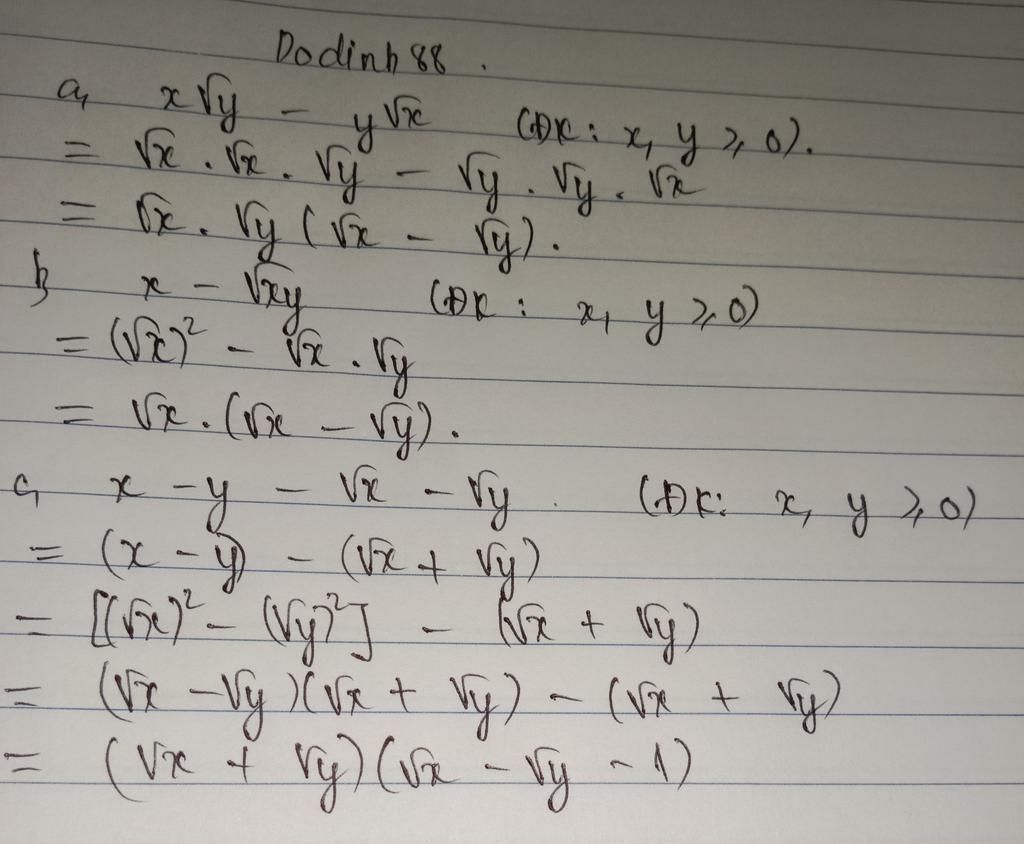 Dodinh88.
a, x√y - y√x (ĐK: x, y ≥ 0).
= √x . √x . √y - √y . √y . √x
= √x . √y (√x - √y).
b, x - √xy (ĐK: x, y ≥ 0)
= (√x)² - √x . √y
= √x . (√x - √y).
c, x - y - √x - √y. (ĐK: x, y ≥ 0)
= (x - y) - (√x + √y)
= [(√x)² - (√y)²] - (√x + √y)
= (√x - √y)(√x + √y) - (√x + √y)
= (√x + √y)(√x - √y - 1)